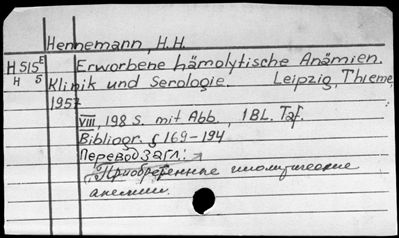 Hennemann, H.H.
H 515 E Erworbene hämolytische Anämien.
H 5 Klinik und Serologie. Leipzig, Thieme,
1957
VIII, 198 S. mit Abb., 1 BL. Taf.
Bibliogr. § 169-194
Перевод загл.:
Приобретенные гемолитические
анемии.